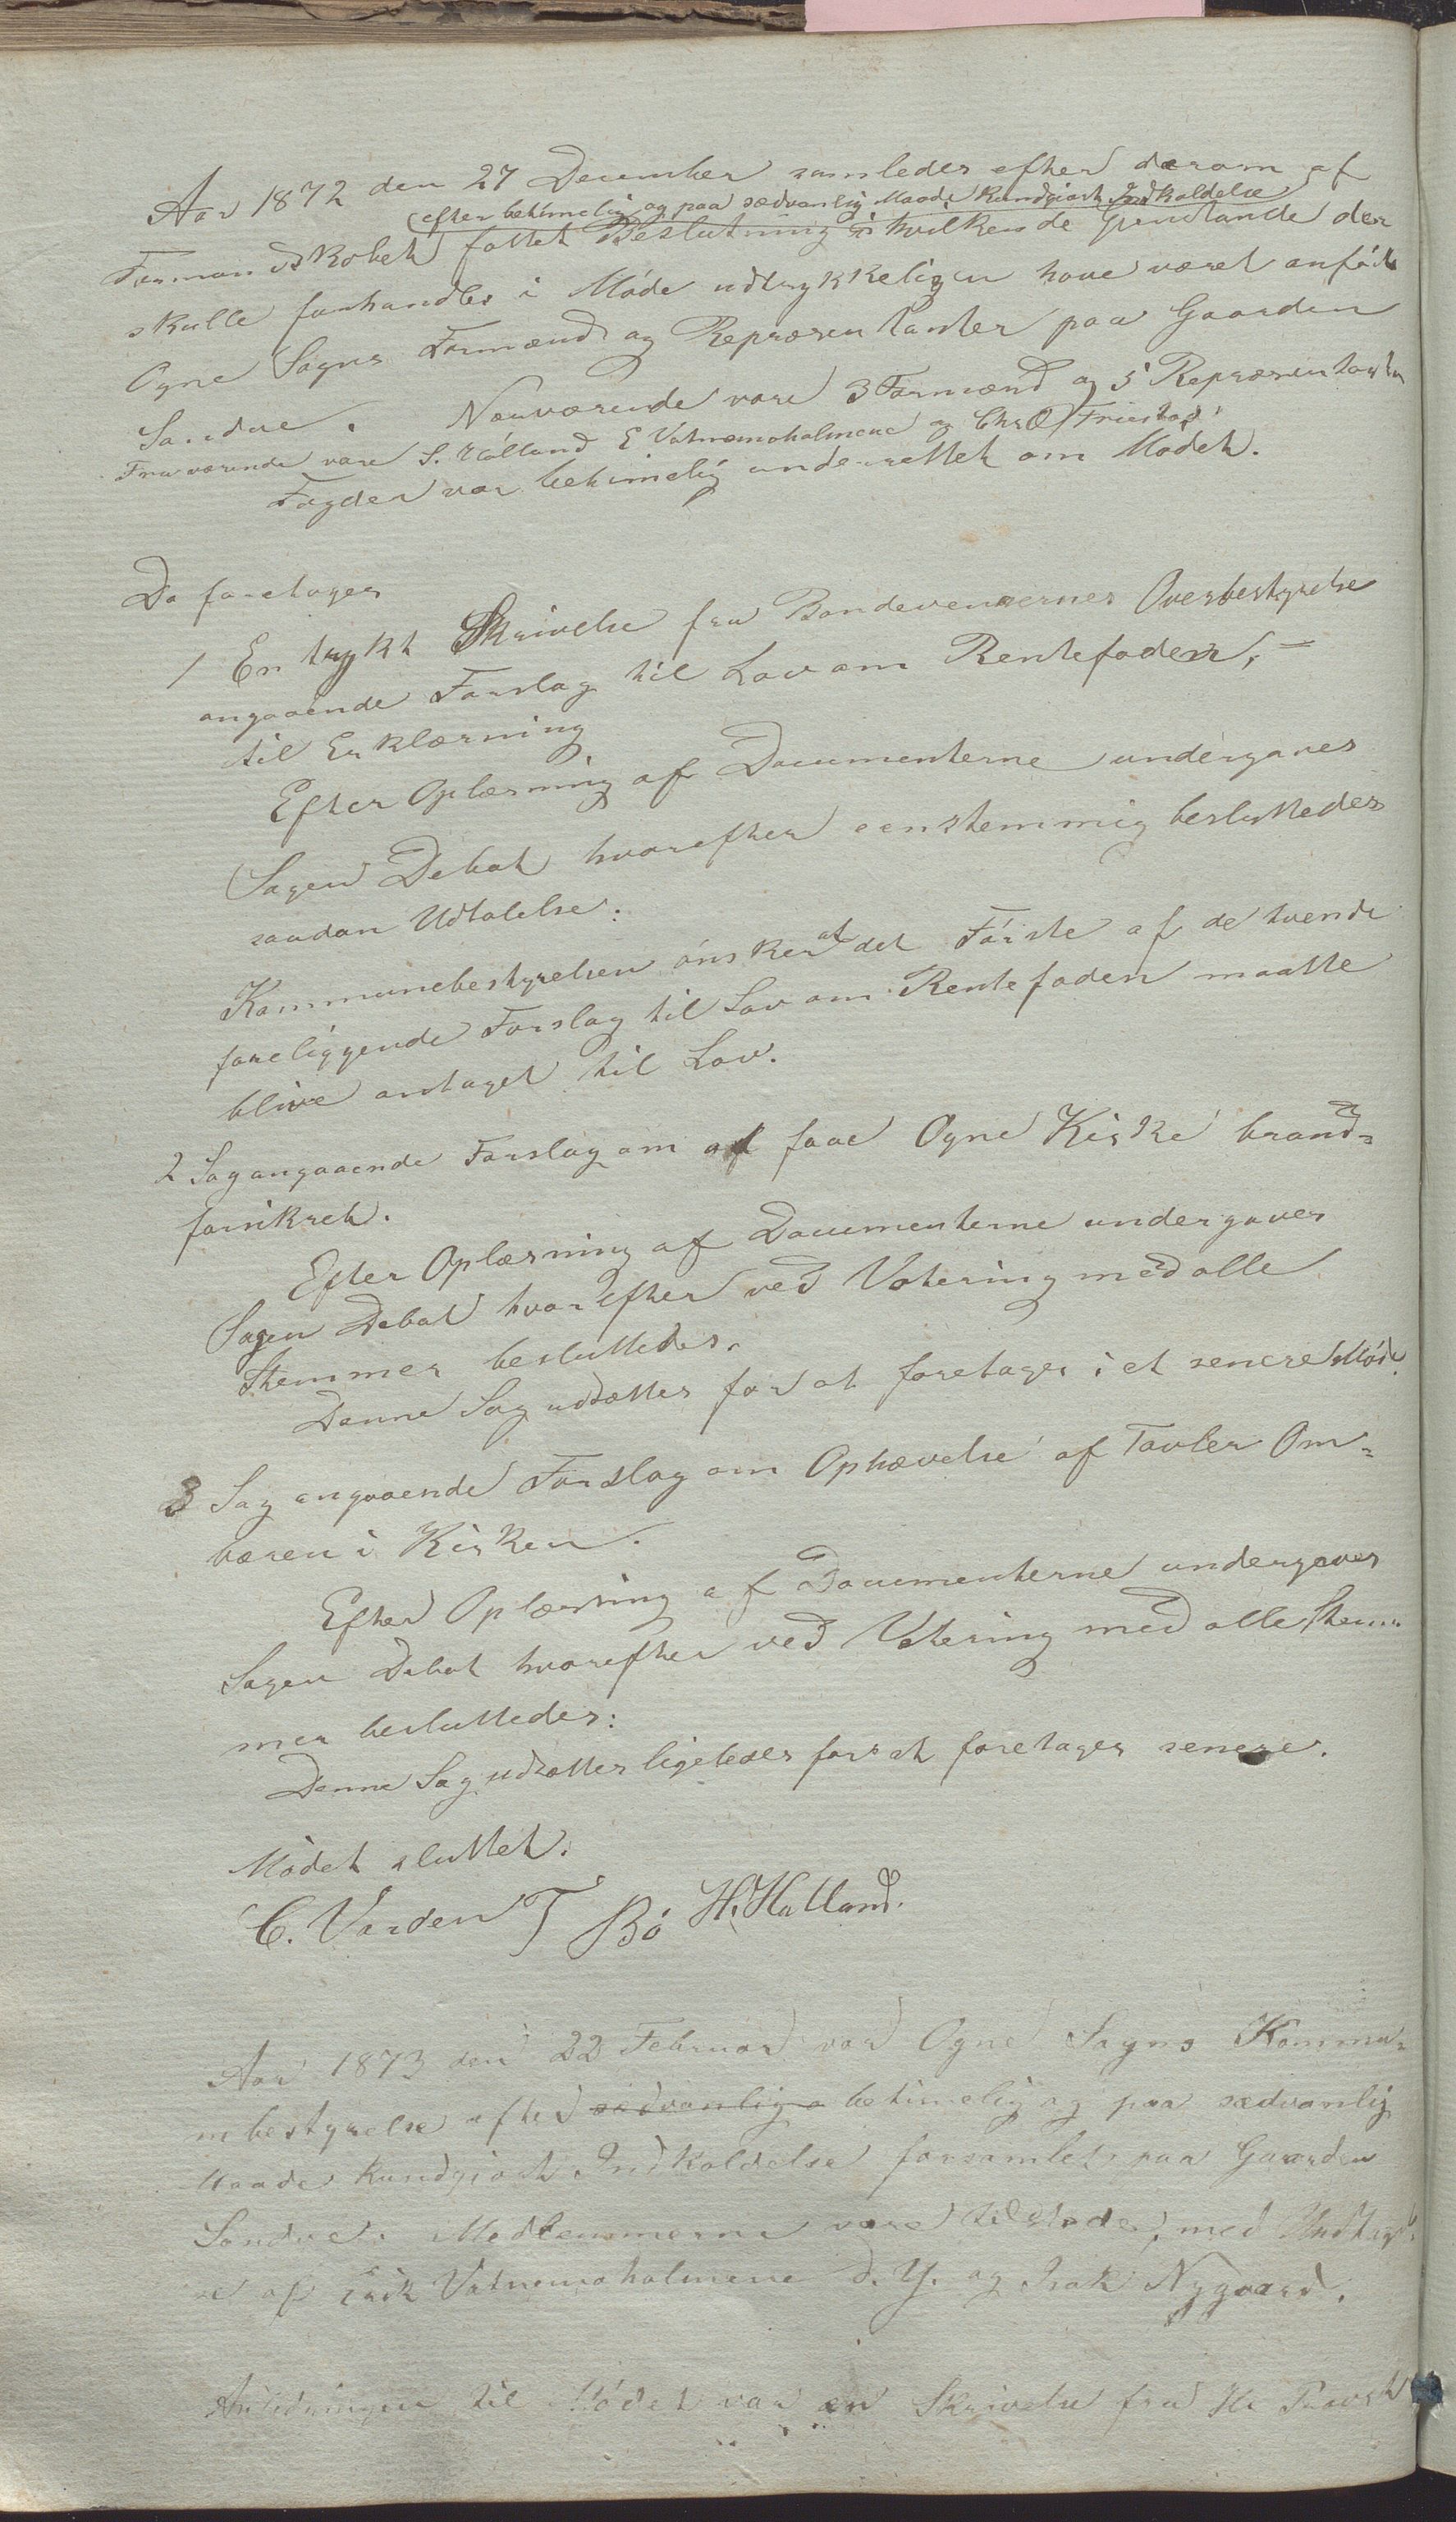 Aar 1872 den 27 December samledes efter derom af
efter betimelig og paa sædvanlig Maade Kundgjort Indkaldelse
Formandskabet fattet Beslutning i hvilken de Gjenstande der
skulle forhandles i Møde udtrykkeligen have været anført
Ogne Sogns Formænd og Repræsentanter paa Gaarden
Sandve. Nærværende vare 3 Formænd og 5 Repræsentanter
Fraværende vare S. Hålland E Vatnemoholmene og Chr O Friestad
Fogden var betimelig underrettet om Mødet.
Da foretoges
1 En trykt Skrivelse fra Bondevennernes Overbestyrelse
angaaende Forslag til Lov om Rentefoden,
til Erklærning
Efter Oplæsning af Documenterne undergaves
Sagen Debat hvorefter eenstemmig besluttedes
saadan Udtalelse:
Kommunebestyrelsen ønsker at det Første af de tvende
foreliggende Forslag til Lov om Rentefoden maatte
blive antaget til Lov.
2 Sag angaaende Forslag om at faae Ogne Kirke brand=
forsikret.
Efter Oplæsning af Documenterne undergaves
Sagen Debat hvorefter ved Votering med alle
Stemmer besluttedes.
Denne Sag udsættes for at foretages i et senere Møde.
3 Sag angaaende Forslag om Ophævelse af Tavler Om=
bæren i Kirken.
Efter Oplæsning af Documenterne undergaves
Sagen Debat hvorefter ved Votering med alle Stem
mer besluttedes:
Denne Sag udsættes ligeledes for at foretages senere.
Mødet sluttet.
C. Varden T Bö H. Halland.
Aar 1873 den 22 Februar var Ogne Sogns Kommu=
nebestyrelse efter sædvanlig betimelig og paa sædvanlig
Maade kundgjort Indkaldelse forsamlet paa Gaarden
Sandve. Medlemmerne vare tilstede, med Undtagel
se af Erik Vatnemoholmene d. Y. og Isak Nygaard.
Anledningen til Mødet var en Skrivelse fra Hr Provst